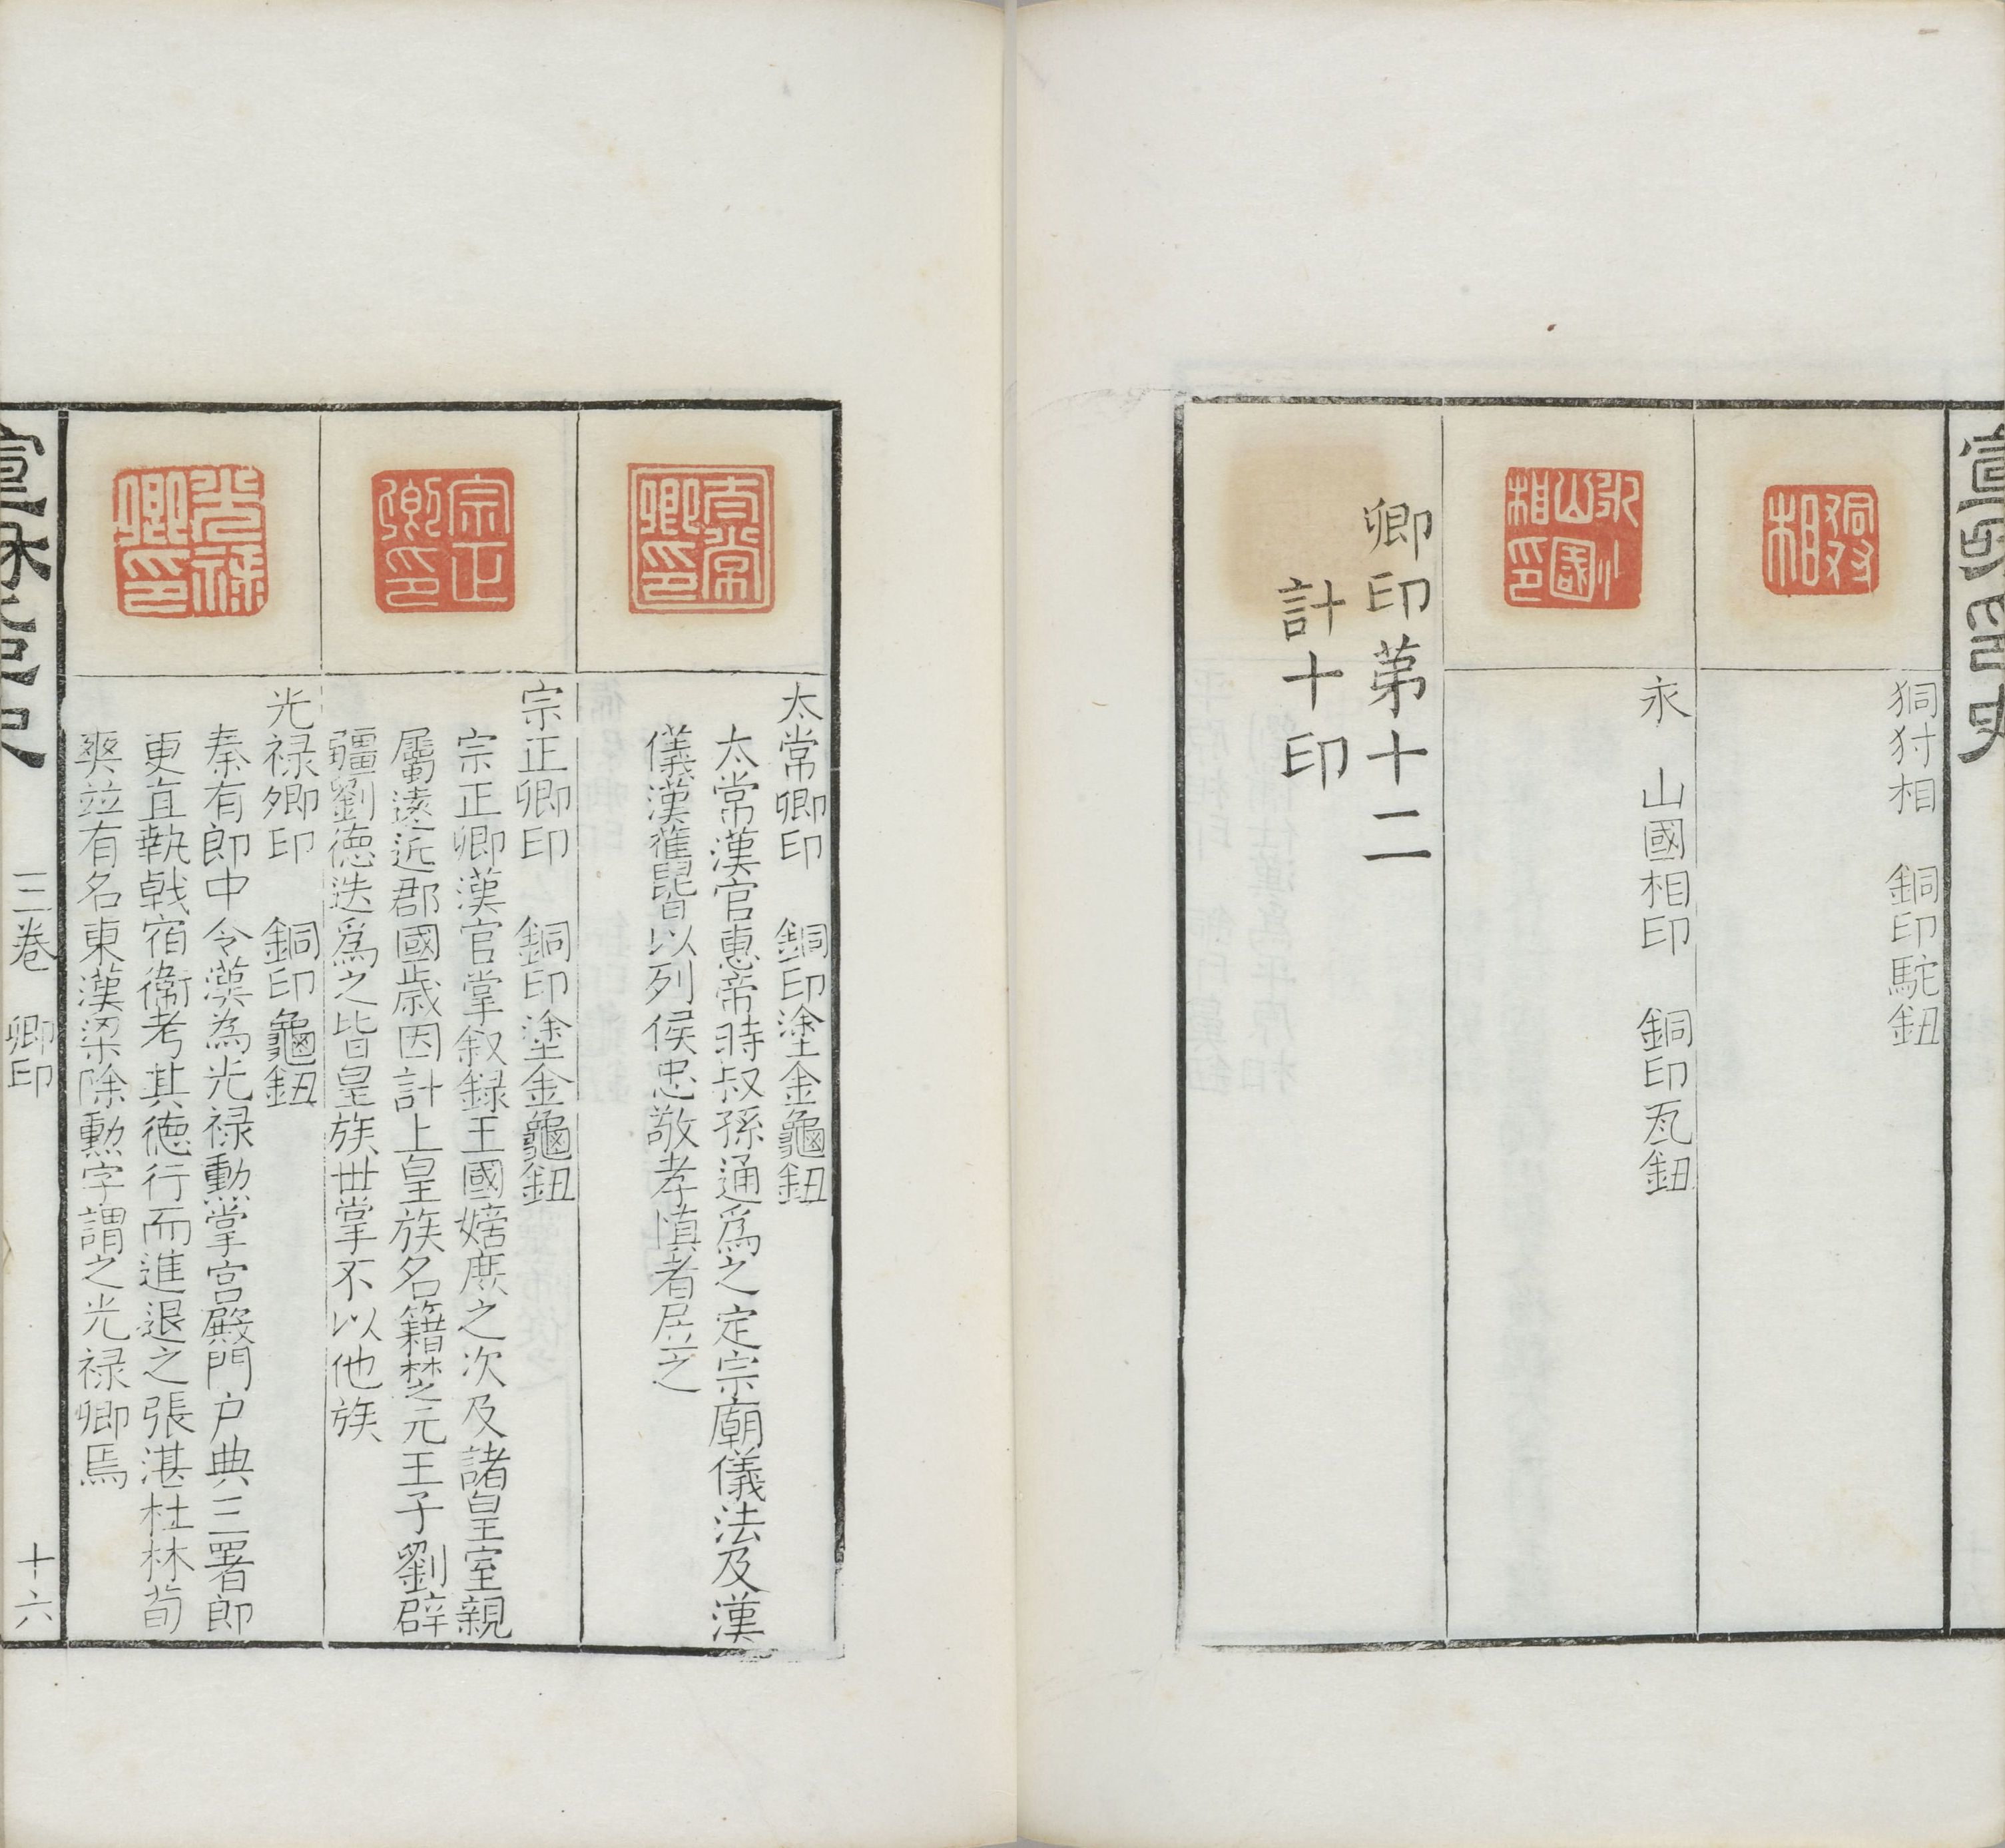 狪狩相 銅印駝鈕
永 山國相印 銅印瓦鈕
卿印苐十二
計十印
太常卿印 銅印塗金龜鈕
太常漢官惠帝時叔孫通爲之定宗廟儀法及漢
儀漢舊皆以列侯忠敬孝慎者居之
宗正卿印 銅印塗金龜鈕
宗正卿漢官掌叙録王國嫡庶之次及諸皇室親
屬遠近郡國歲因計上皇族名籍楚元王子劉辟
疆劉德迭爲之皆皇族世掌不以他族
光禄卿印 銅印龜鈕
秦有郎中令漢為光禄勳掌宫殿門户典三署郎
更直執戟宿衛考其德行而進退之張湛杜林荀
爽竝有名東漢梁除勳字謂之光禄卿焉
三卷 卿印 十六